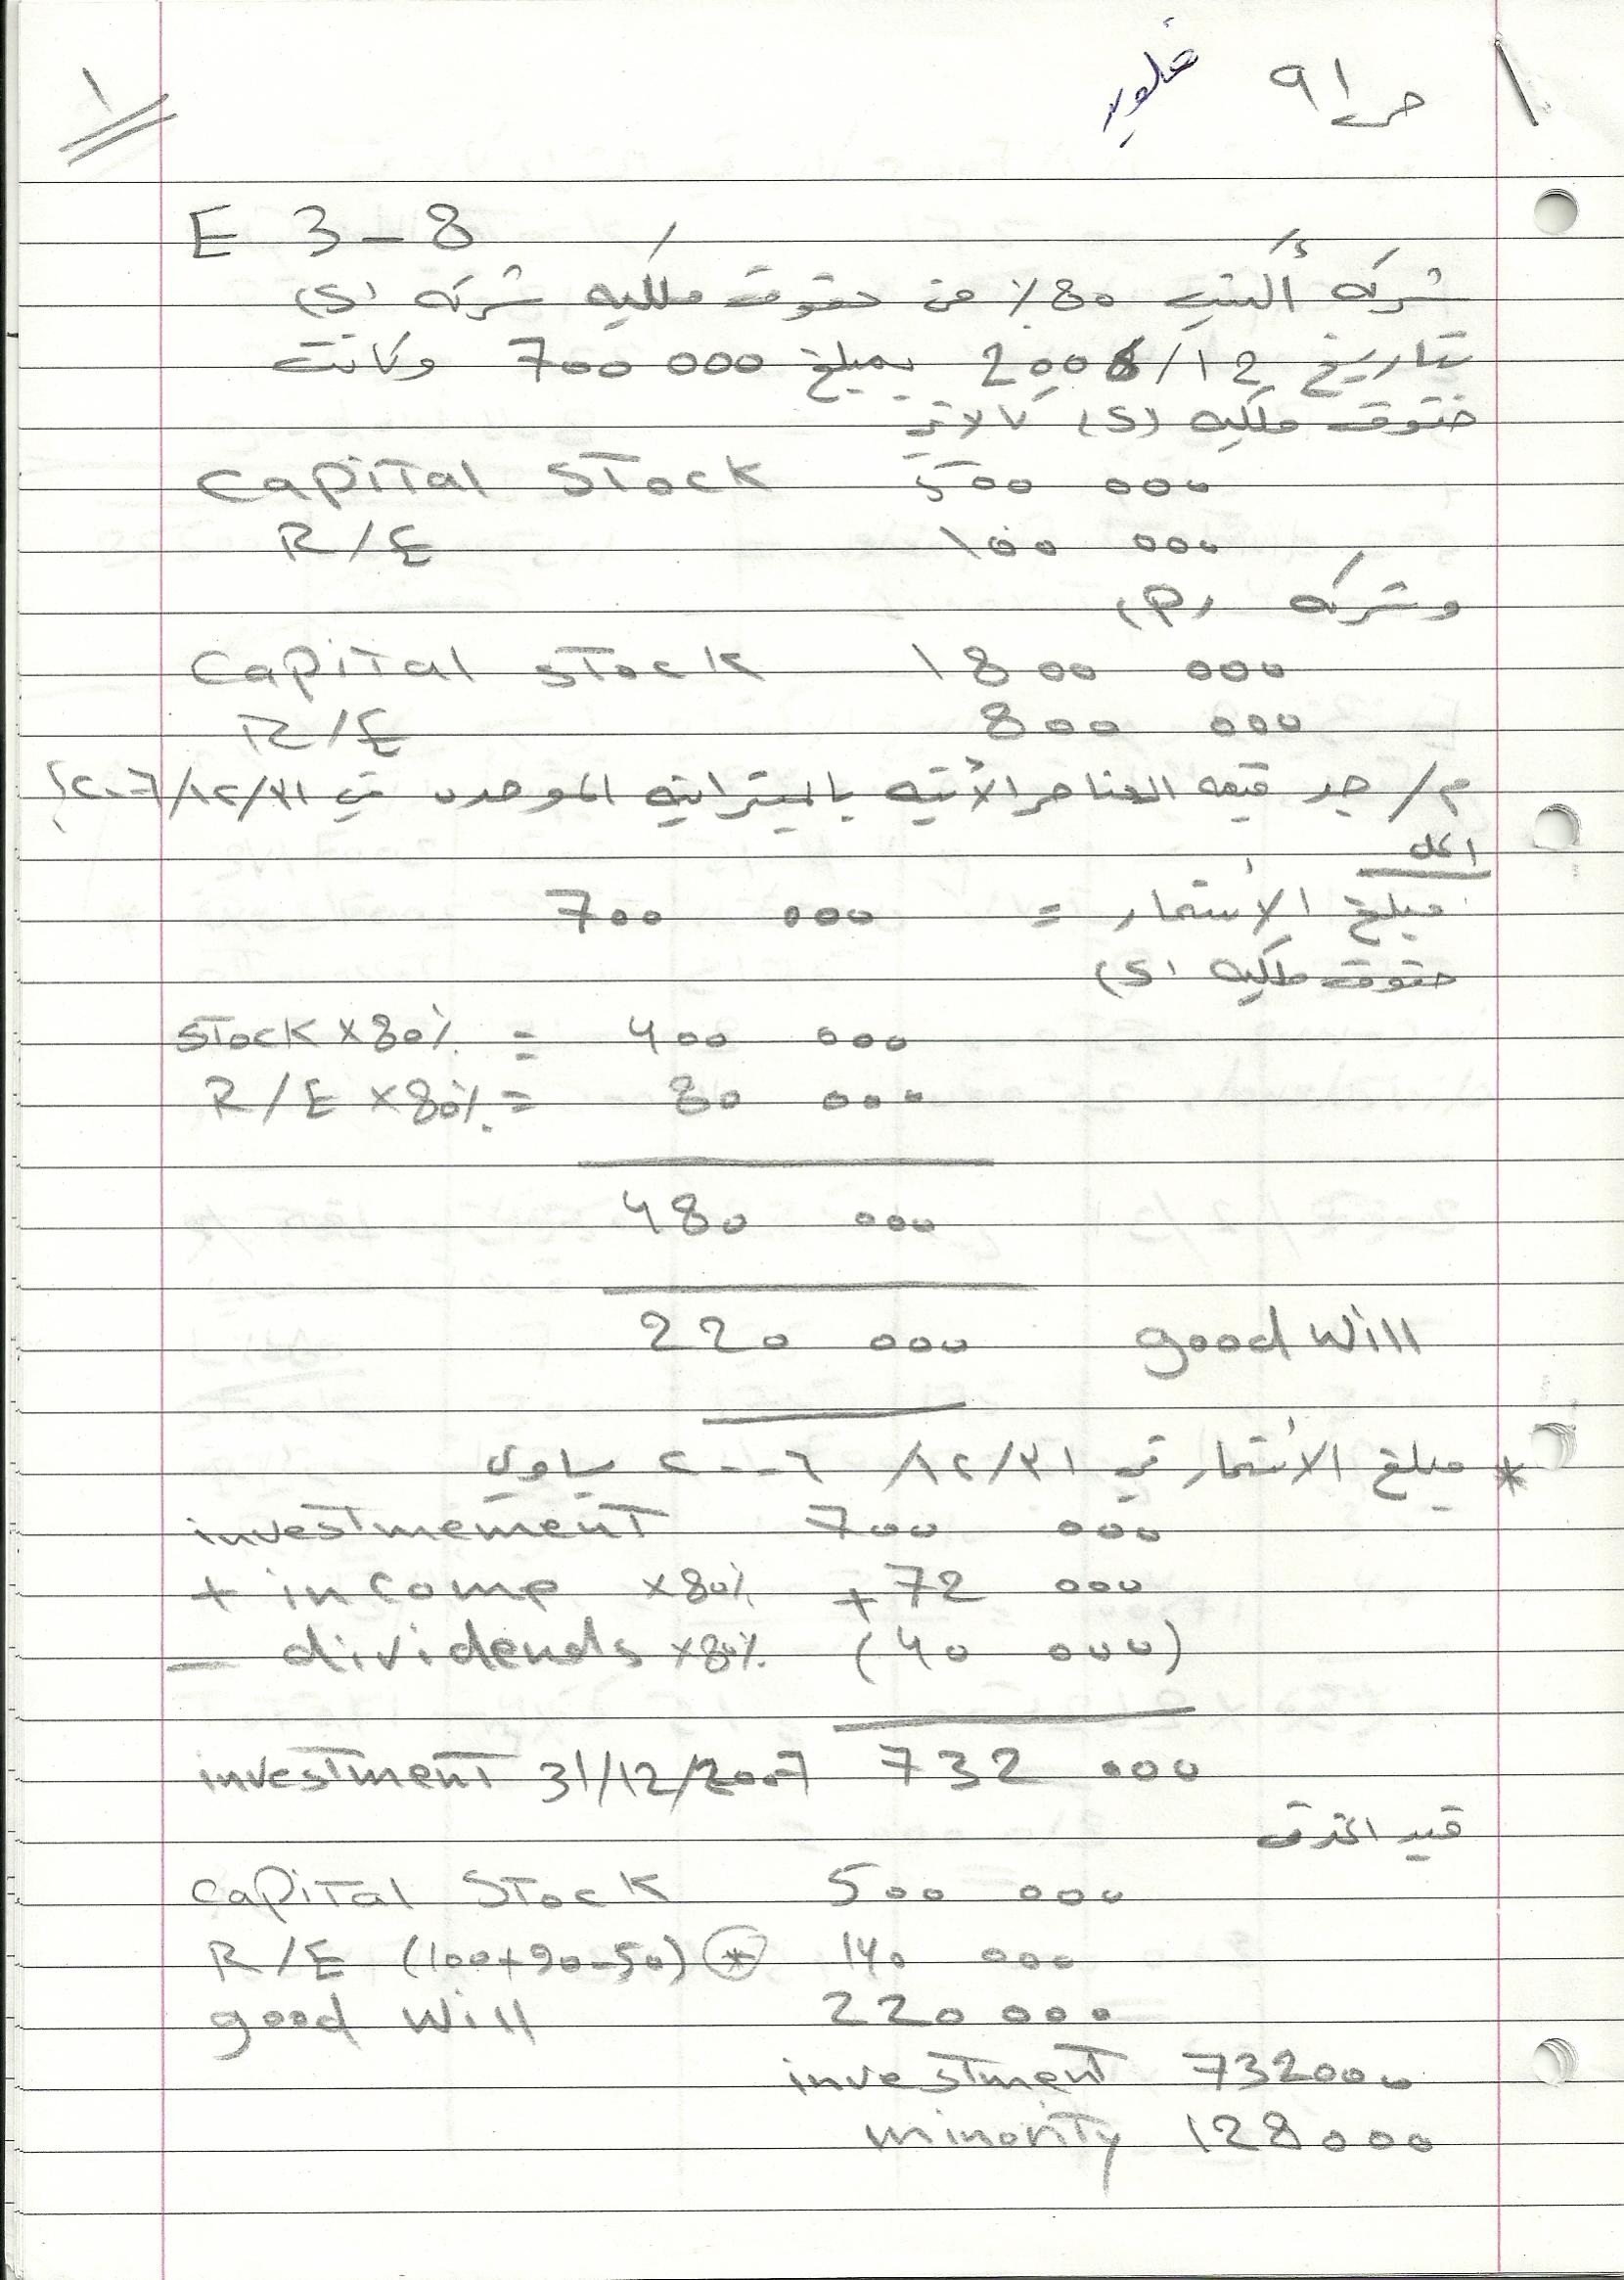 ص ٩١
١
E 3-8
شركة أكتب 80٪ من حقوق ملكيه شركه (S)
بتاريخ 2006/12 بمبلغ 700 000 وكانت
حقوق ملكيه (S) كالاتي
Capital Stock 500 000
R/E 100 000
وشركه (P)
Capital stock 1 800 000
R/E 800 000
م/ جد قيمه العناصر الأتيه بالميزانيه الموحده في ٢٠٠٦/١٢/٣١؟
الحل
مبلغ الأستثمار = 700 000
حقوق ملكيه (S)
Stock x80% = 400 000
R/E x80% = 80 000
480 000
220 000 good Will
* مبلغ الأستثمار في ٣١/١٢/ ٢٠٠٦ يساوي
investmement 700 000
+ income x80% +72 000
- dividends x80% (40 000)
investment 31/12/2007 732 000
قيد الحذف
Capital Stock 500 000
R/E (100+90-50) * 140 000
good Will 220 000
investment 732000
minority 128000